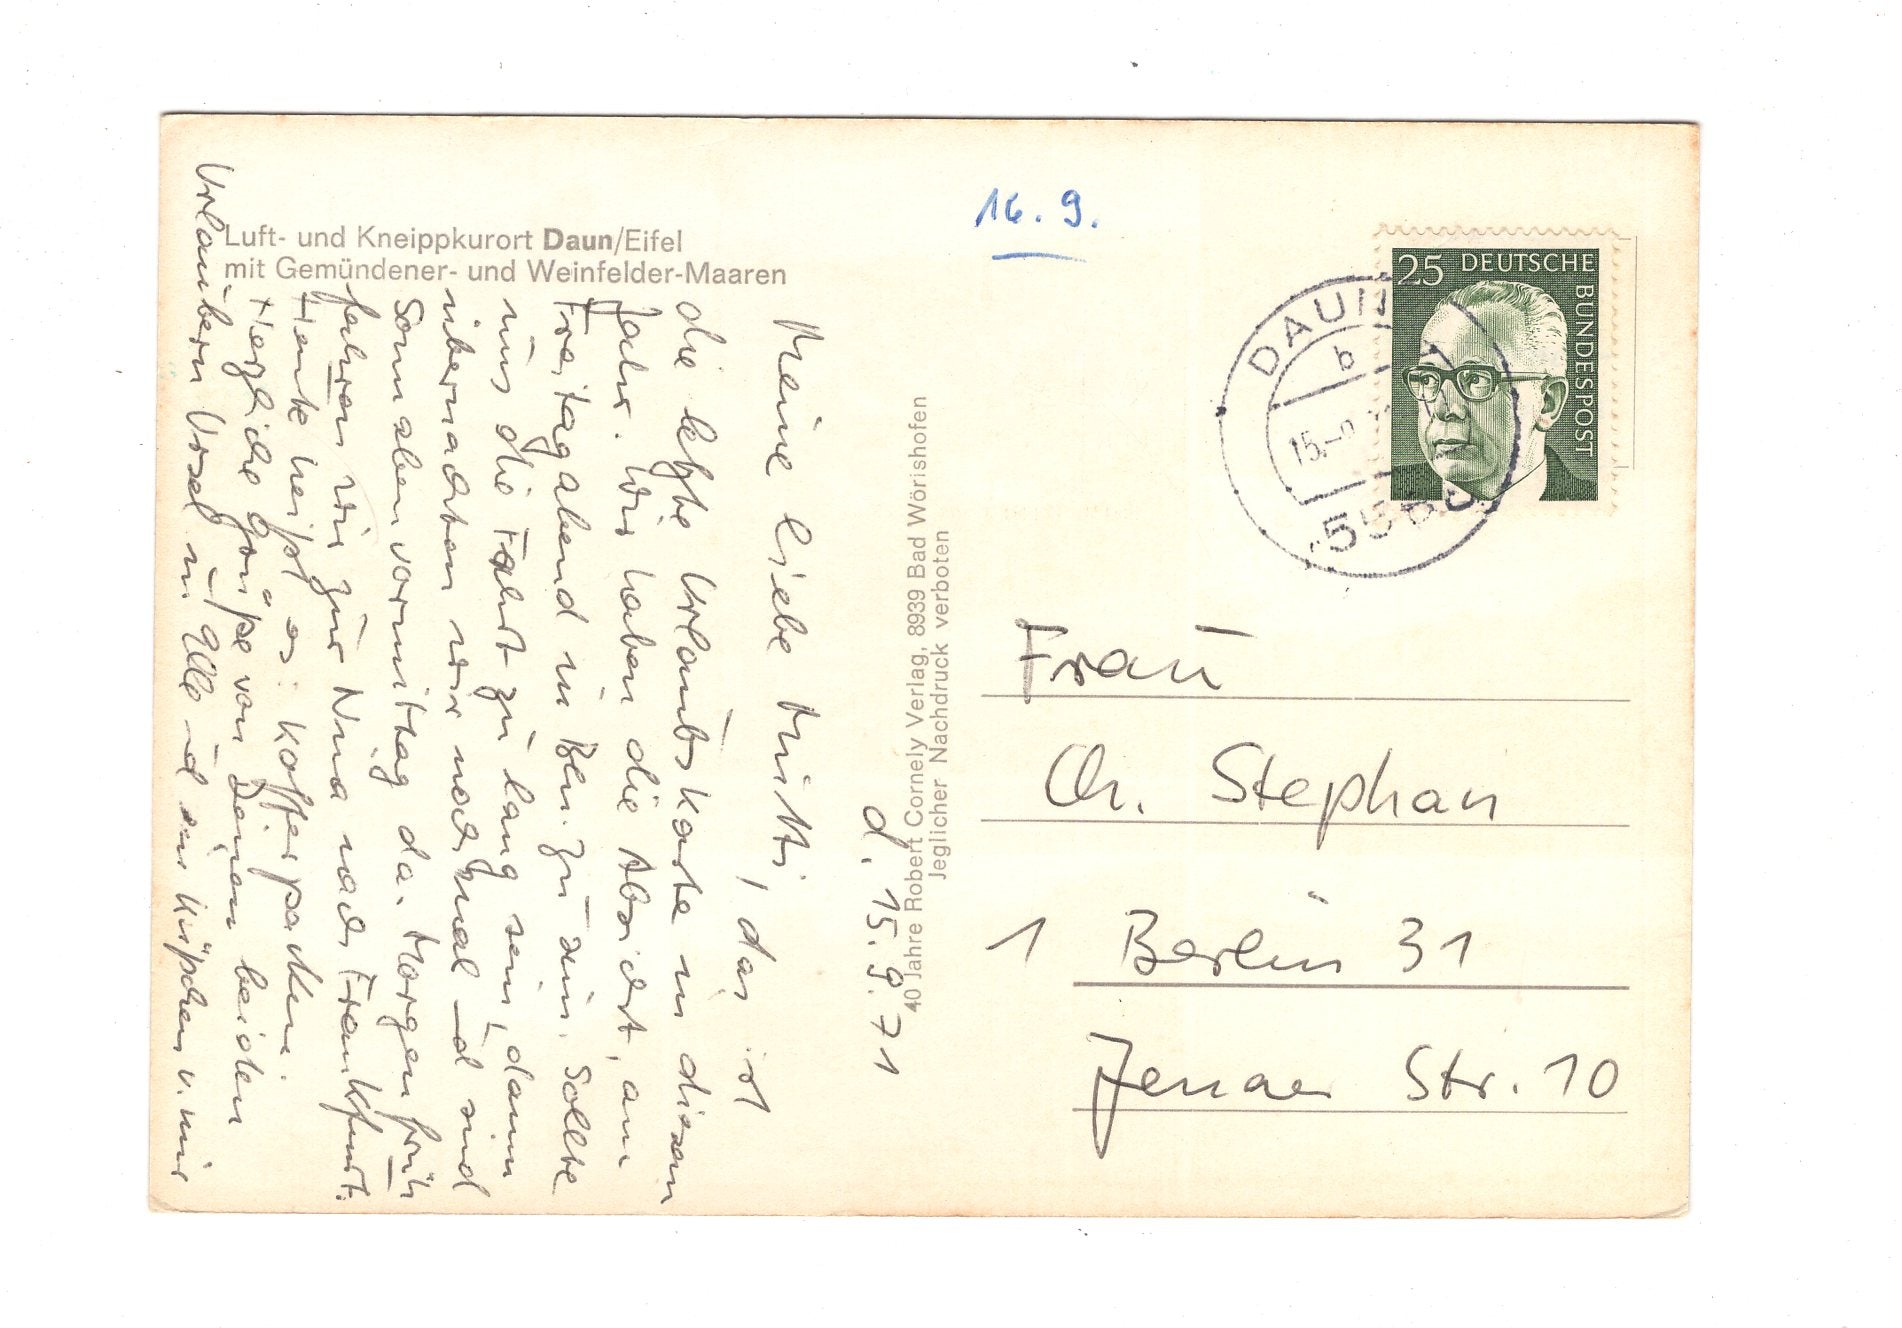 Luft- und Kneippkurort Daun/Eifel
mit Gemündener- und Weinfelder-Maaren
16. 9.
25 DEUTSCHE BUNDESPOST
DAUN
b
15.-9
d. 15.9.71
Meine liebe Mutti, das ist
die letzte Urlaubskarte in diesem
Jahr. Wir haben die Absicht, am
Freitagabend in Bln. zu sein. Sollte
uns die Fahrt zu lang sein, dann
übernachten wir nochmal ud sind
Sonnabenvormittag da. Morgen früh
fahren wir zur Nina nach Frankfurt.
Heute heißt es: Kofferpacken.
Herzliche Grüße von Deinen beiden
Urlaubern Ursel u. ud ein Küßchen v. mir
40 Jahre Robert Cornely Verlag, 8939 Bad Wörishofen
Jeglicher Nachdruck verboten
Frau
Ch. Stephan
1 Berlin 31
Jenaer Str. 10